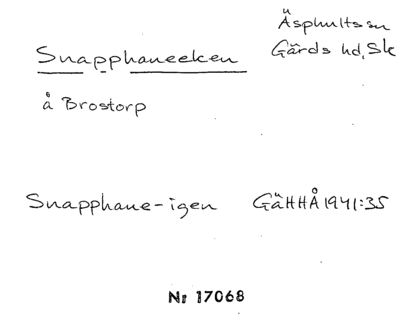 Äsphults sn
Gärds hd, Sk
Snapphaneeken
å Brostorp
Snapphane-igen GäHHÅ 1941:35
Nr 17068